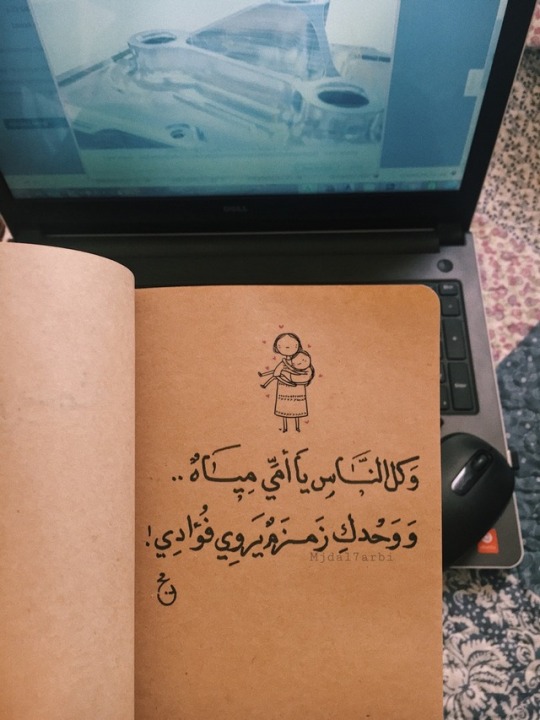 DELL
وَكلُ النَّاسِ يَا أُمِّي مِيَاهٌ ..
وَوَحْدكِ زَمـزَمٌ يَروِي فُؤَادِي!
Mjdal7arbi